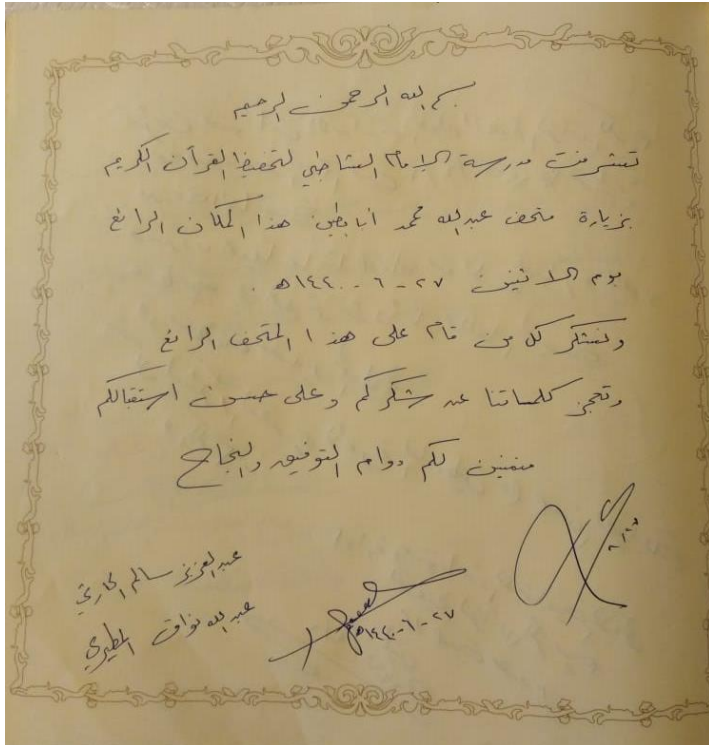 بسم الله الرحمن الرحيم
تشرفت مدرسة الإمام الشاطبي لتحفيظ القرآن الكريم
بزيارة متحف عبدالله محمد أبابطين هذا المكان الرائع
يوم الاثنين ٢٧ - ٦ - ١٤٤٠هـ.
ونشكر كل من قام على هذا المتحف الرائع
وتعجز كلماتنا عن شكركم وعلى حسن استقبالكم
متمنين لكم دوام التوفيق والنجاح
عبدالعزيز سالم الحارثي
عبدالله نواف المطيري
٢٧ - ٦ - ١٤٤٠هـ